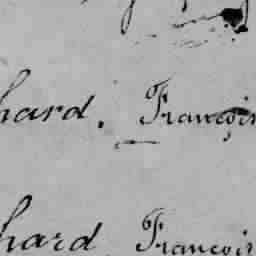 hard. François
hard François